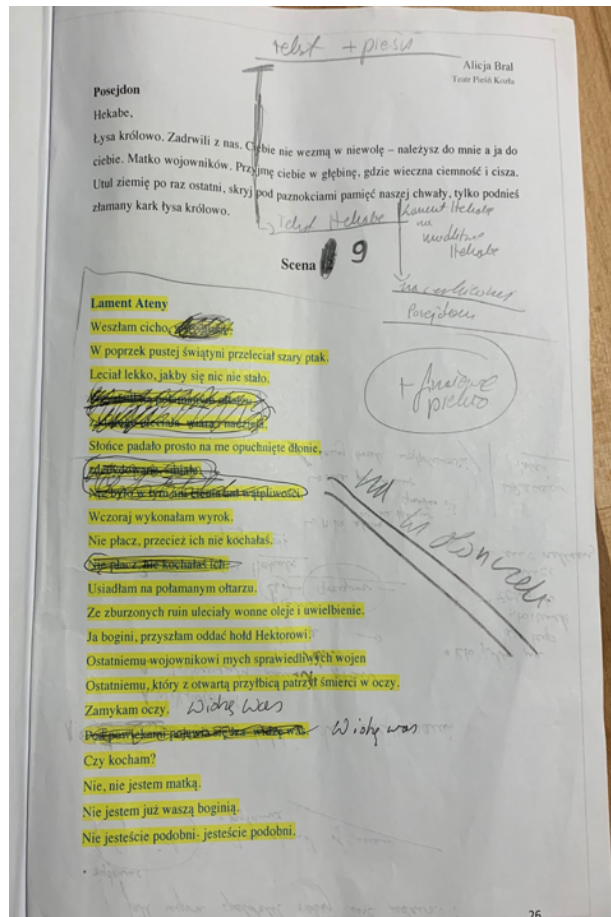 tekst + pieśń
Alicja Bral
Teatr Pieśń Kozła
Posejdon
Hekabe,
Łysa królowo. Zadrwili z nas. Ciebie nie wezmą w niewolę – należysz do mnie a ja do
ciebie. Matko wojowników. Przyjmę ciebie w głębinę, gdzie wieczna ciemność i cisza.
Utul ziemię po raz ostatni, skryj pod paznokciami pamięć naszej chwały, tylko podnieś
złamany kark łysa królowo.
Tekst Hekabe
Lament Hekabe
na
modlitwę
Hekabe
Posejdon
Scena 9
Lament Ateny
Weszłam cicho,
W poprzek pustej świątyni przeleciał szary ptak.
Leciał lekko, jakby się nic nie stało.
+
piekło
Słońce padało prosto na me opuchnięte dłonie,
Nie było w tym ani cienia wątpliwości.
Wczoraj wykonałam wyrok.
Nie płacz, przecież ich nie kochałaś.
Nie płacz, nie kochałaś ich.
Usiadłam na połamanym ołtarzu.
Ze zburzonych ruin uleciały wonne oleje i uwielbienie.
Ja bogini, przyszłam oddać hołd Hektorowi.
Ostatniemu wojownikowi mych sprawiedliwych wojen
Ostatniemu, który z otwartą przyłbicą patrzył śmierci w oczy.
Zamykam oczy. Widzę was
Widzę was
Czy kocham?
Nie, nie jestem matką.
Nie jestem już waszą boginią.
Nie jesteście podobni- jesteście podobni.
26